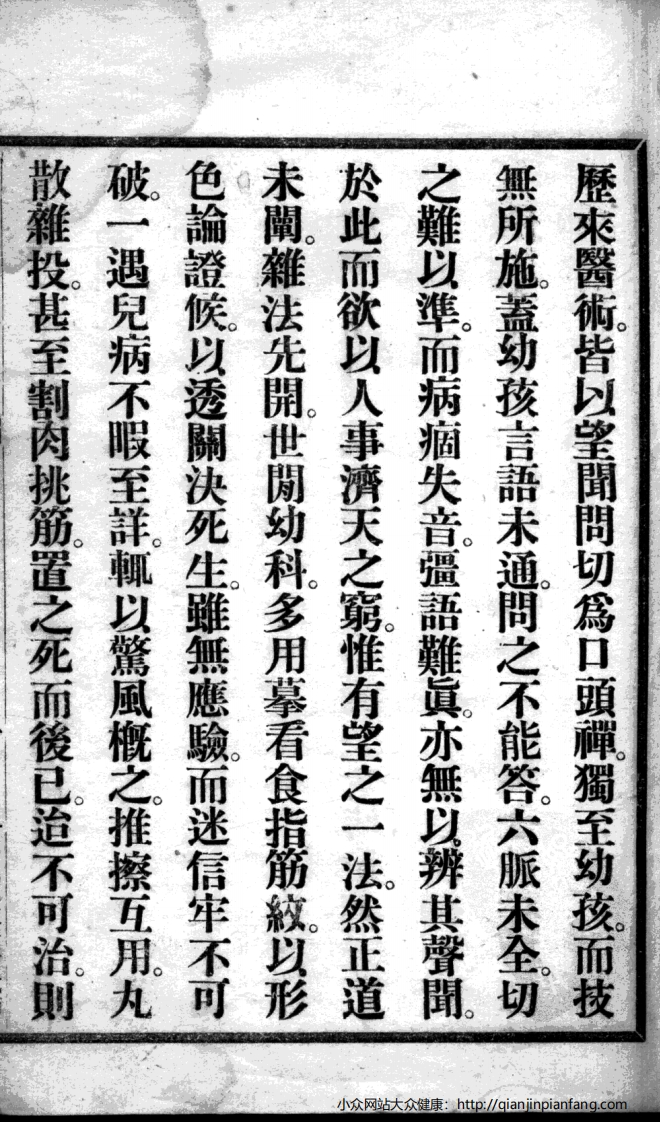 歷來醫術。皆以望聞問切爲口頭禪。獨至幼孩。而技
無所施。蓋幼孩言語未通。問之不能答。六脈未全。切
之難以準。而病痼失音。彊語難眞。亦無以辨其聲聞。
於此而欲以人事濟天之窮。惟有望之一法。然正道
未闡。雜法先開。世閒幼科。多用摹看食指筋紋。以形
色論證候。以透關決死生。雖無應驗。而迷信牢不可
破。一遇兒病不暇至詳。輒以驚風槪之。推擦互用。丸
散雜投。甚至割肉挑筋。置之死而後已。迨不可治。則
小众网站大众健康：http://qianjinpianfang.com